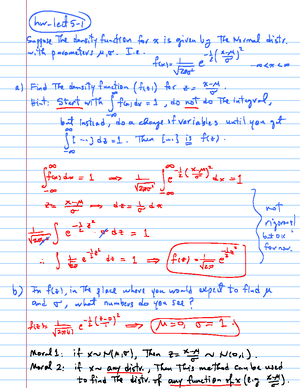 hw-lect 5-1
Suppose the density function for x is given by the Normal distr.
with parameters μ, σ. I.e.
f(x) = 1/√(2πσ²) e^(-½((x-μ)/σ)²) -∞<x<∞
a) Find the density function (f(z)) for z = (x-μ)/σ.
Hint: Start with ∫_{-∞}^{∞} f(x) dx = 1, do not do the integral,
but instead, do a change of variables until you get
∫[---] dz = 1. Then [---] is f(z).
∫_{-∞}^{∞} f(x) dx = 1 ⇒ 1/√(2πσ²) ∫_{-∞}^{∞} e^(-½((x-μ)/σ)²) dx = 1
z = (x-μ)/σ ⇒ dz = 1/σ dx
1/√(2πσ²) ∫ e^(-½z²) σ dz = 1
∴ ∫ 1/√(2π) e^(-½z²) dz = 1 ⇒ f(z) = 1/√(2π) e^(-½z²)
not
rigorous
but ok
for now.
b) In f(z), in the place where you would expect to find μ
and σ, what numbers do you see?
f(z) = 1/√(2π(1)) e^(-½((z-0)/1)²) ⇒ μ=0, σ=1
Moral 1: if x ~ N(μ,σ), Then z = (x-μ)/σ ~ N(0,1).
Moral 2: if x ~ any distr., Then This method can be used
to find The distr. of any function of x (e.g. (x-μ)/σ).